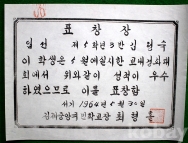 표창장
일선 제5학년3반 김현숙
이 학생은 5월에실시한 교내경시대
회에서 위와같이 성적이 우수
하였으므로 이를 표창함
서기 1964년 5월 30일
민학교장 최형
kobay